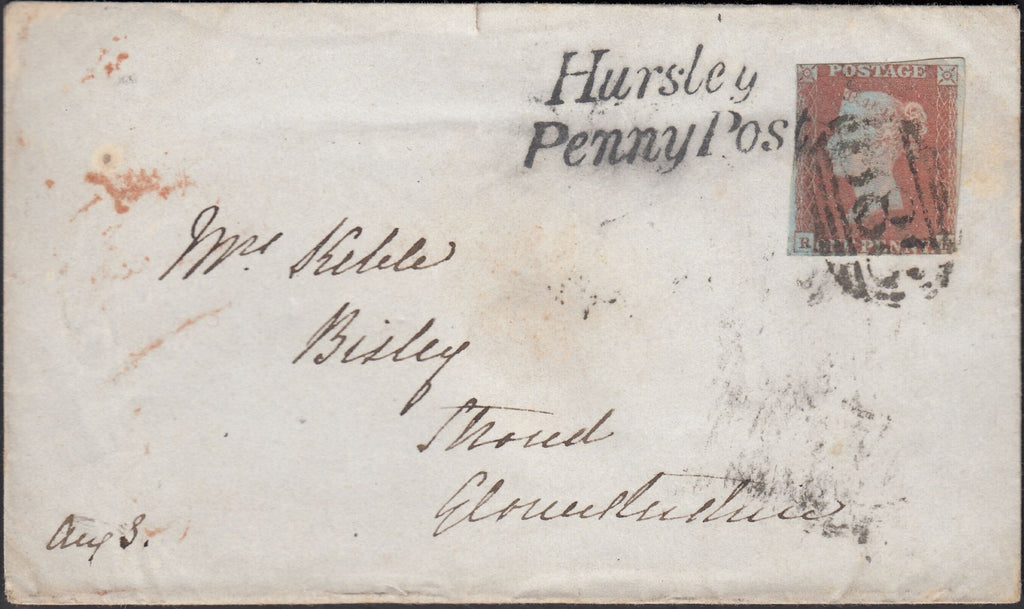 Hursley
Penny Post
POSTAGE
R
PENNY
Mrs. Keble
Bisley
Stroud
Gloucestershire
Aug 3.